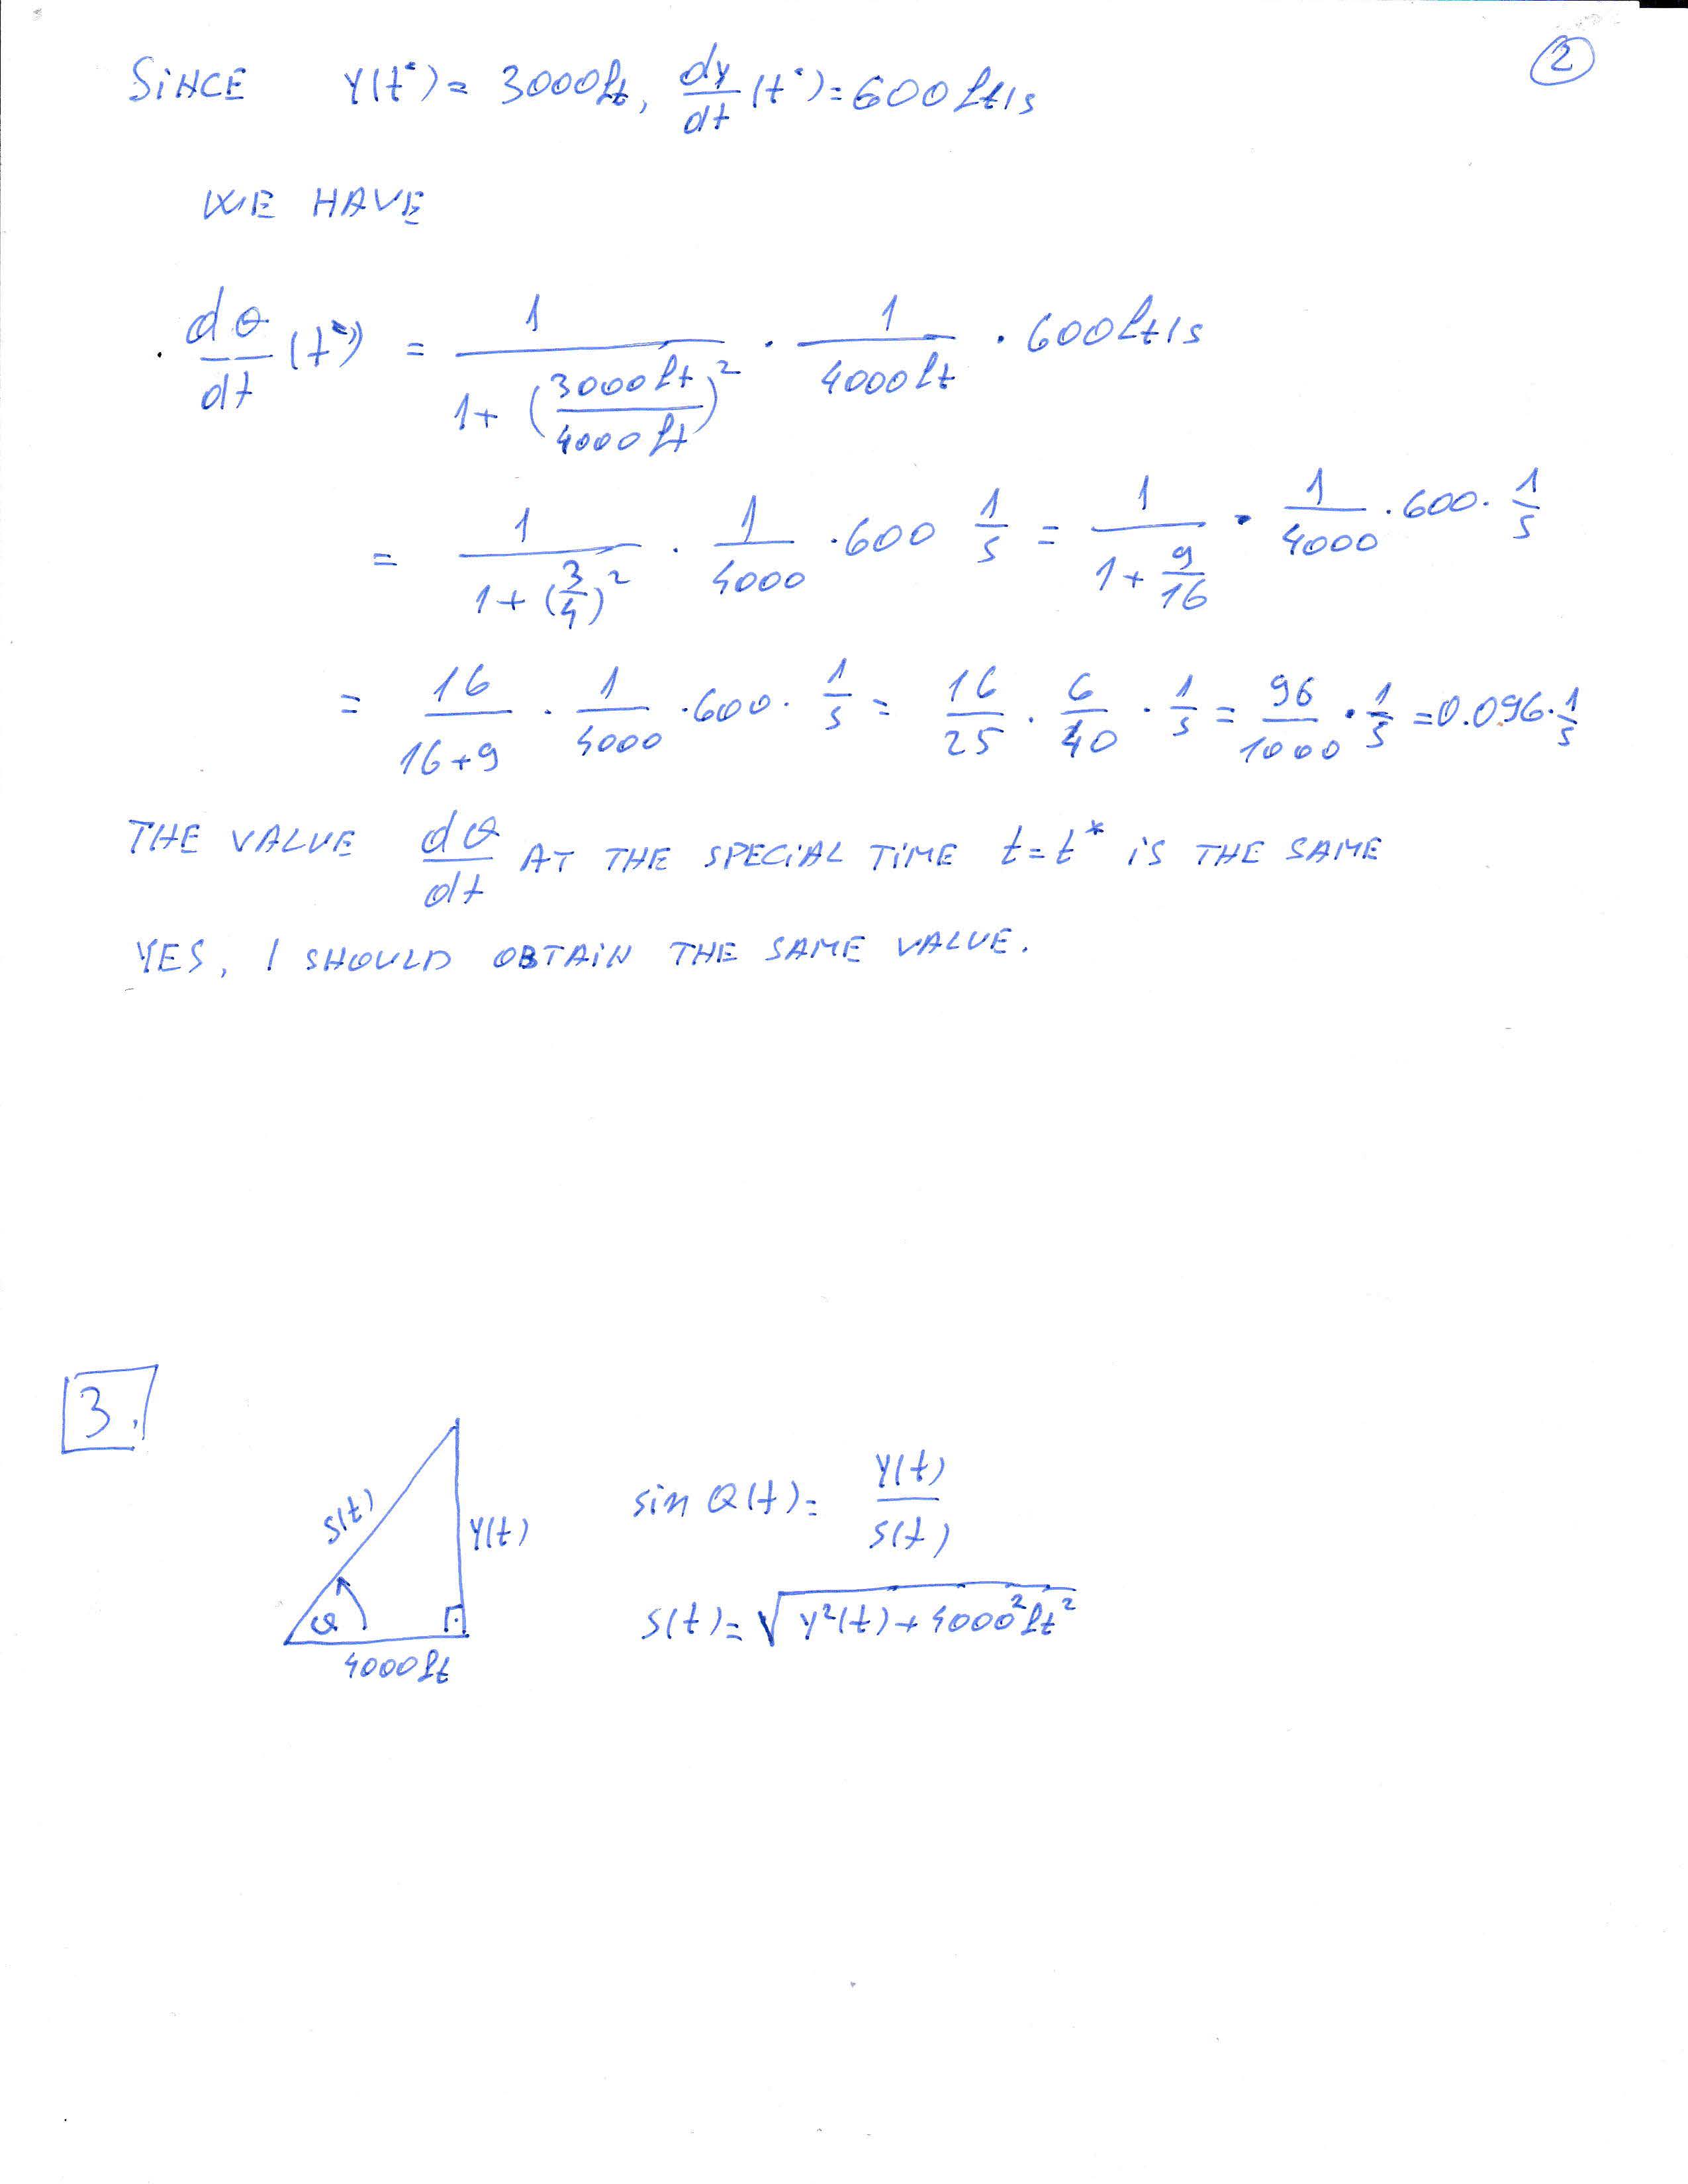 2
SINCE y(t*) = 3000ft, dy/dt (t*) = 600ft/s
WE HAVE
dθ/dt (t*) = 1/(1+(3000ft/4000ft)²) · 1/4000ft · 600ft/s
= 1/(1+(3/4)²) · 1/4000 · 600 1/s = 1/(1+9/16) · 1/4000 · 600 · 1/s
= 16/(16+9) · 1/4000 · 600 · 1/s = 16/25 · 6/40 · 1/s = 96/1000 · 1/s = 0.096 · 1/s
THE VALUE dθ/dt AT THE SPECIAL TIME t=t* IS THE SAME
YES, I SHOULD OBTAIN THE SAME VALUE.
3.
s(t)
y(t)
θ
4000ft
sin θ(t) = y(t)/s(t)
s(t) = √(y²(t) + 4000²ft²)